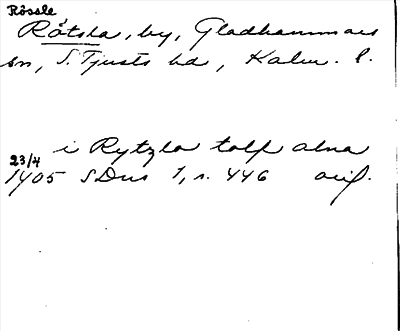 Rössle
Rötsla, by, Gladhammars
sn, S. Tjusts hd, Kalm. l.
i Rytzla tolf alna
23/4
1405 SDns 1, s. 446 orig.